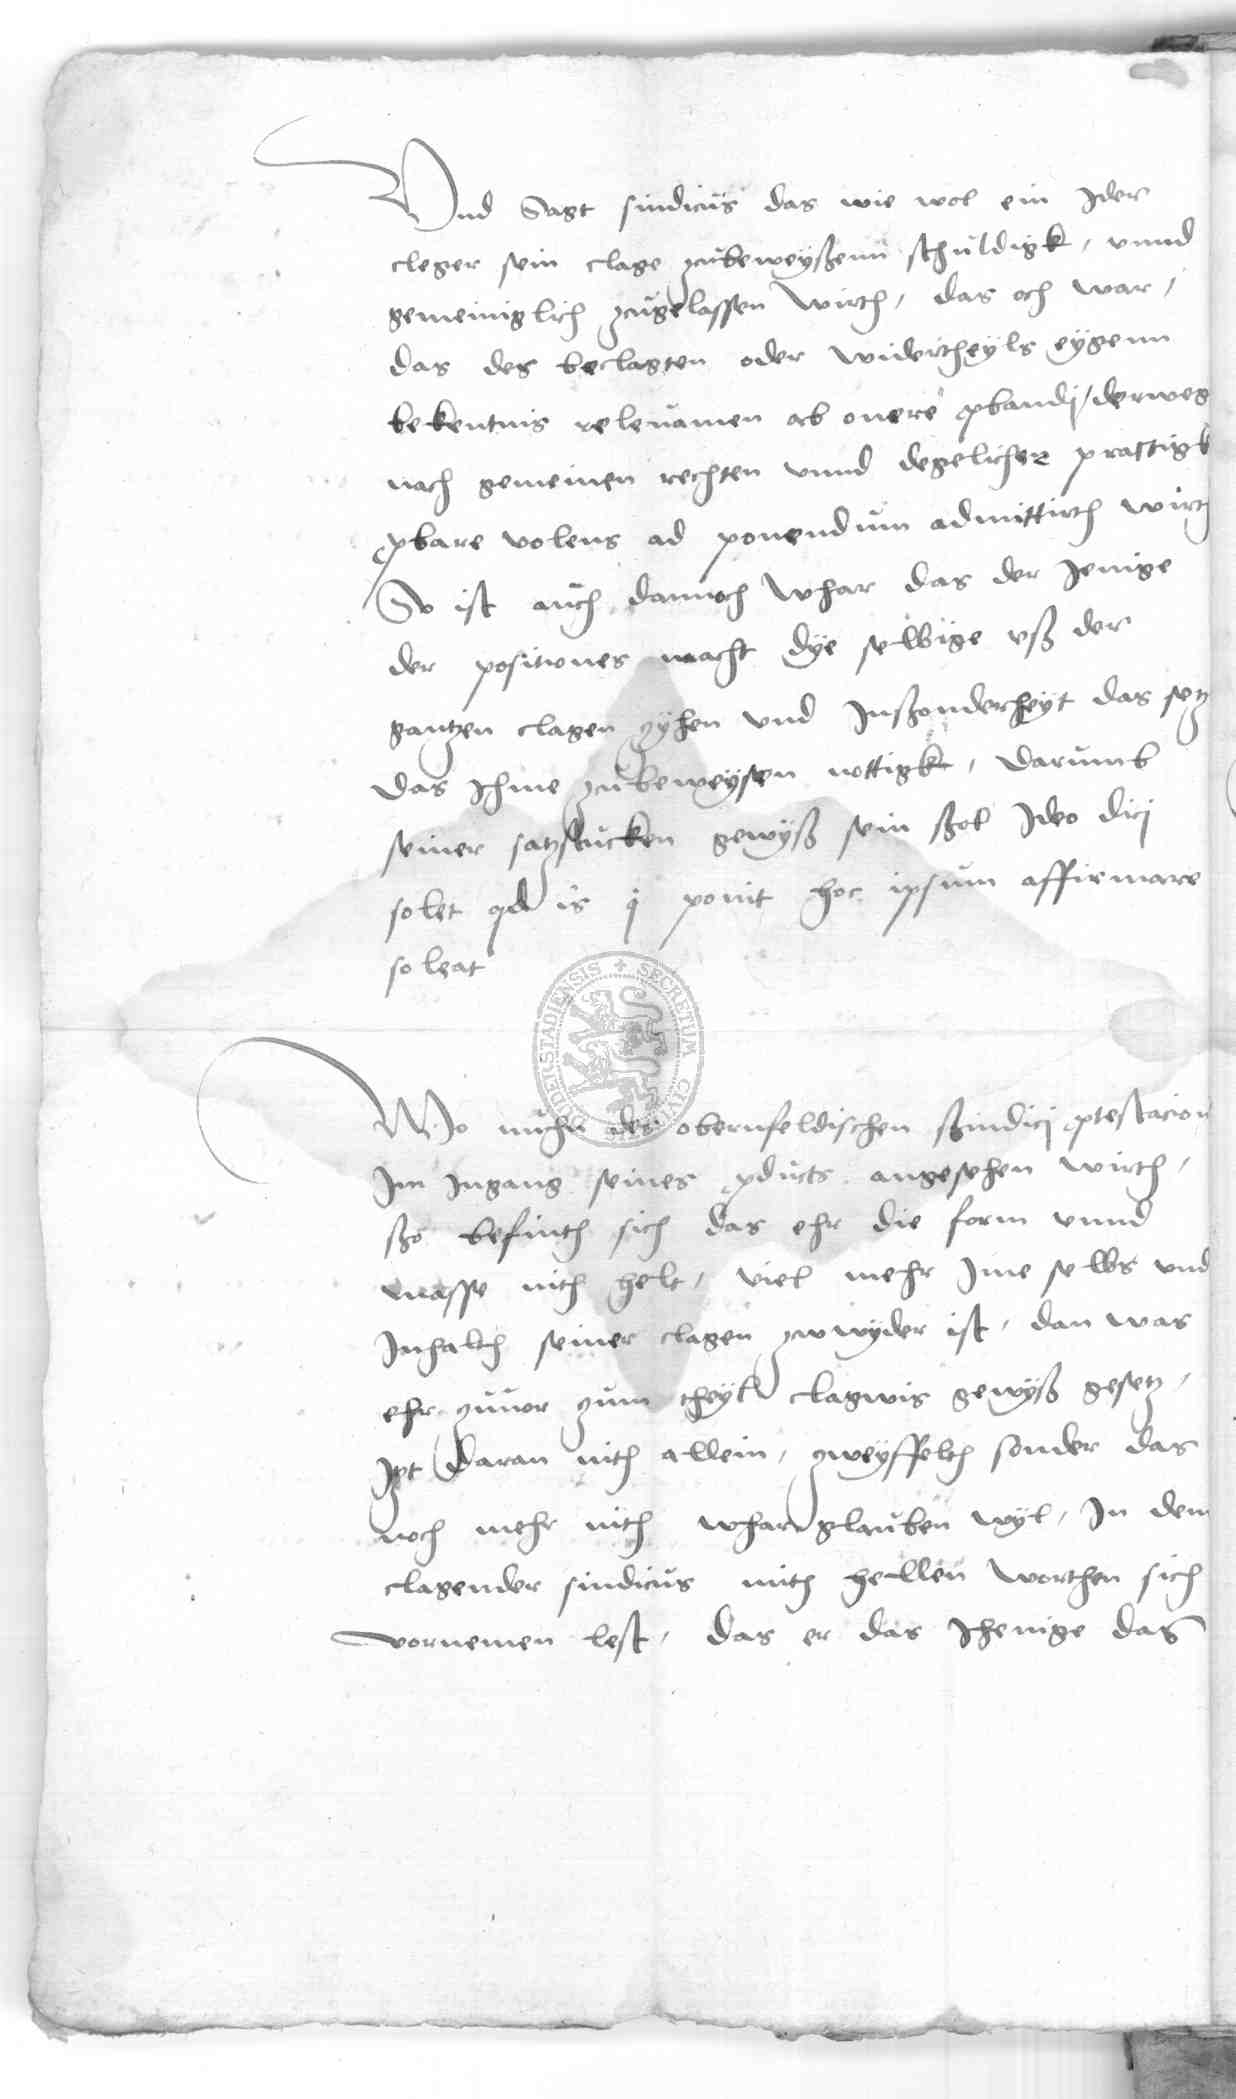 Vnd Sagt sindicus das wie wol ein Jder
cleger sein clage zcubeweyßenn schuldigk, vnnd
gemeiniglich zcugelassen wirth, das och war,
das des beclagten oder widertheyls eygenn
bekentnis releuamen ab onere pbandj, derweg
nach gemeinen rechten vnnd degelicher practigk
pbare volens ad ponendum admittirth wirth
So ist auch dannoch whar das der Jenige
der positiones macht dye selbige vß der
gantzen clagen zyhen vnd Jnßonderheyt das setz
das Jhme zcubeweysen nottigk, darumb
seiner satzstucken gewyß sein ßol Jdeo dicj
solet qd is q ponit hoc ipsum affirmare
soleat
SECRETUM CIVITATIS DUDERSTADIENSIS
Wo nuhn des obernfeldischen ßindicj ptestacion
Jm Jngang seines pducts angesehen wirth,
ßo befinth sich das ehr die form vnnd
masse nith helt, viel mehr Jme selbs vnd
Jnhalth seiner clagen zwwyder ist, dan was
ehr zuuor zum theyl clagwis gewyß gesetz,
Jtzt daran nith allein, zweyffelth sonder das
noch mehr nith whar glauben wyl, Jn dem
clagender sindicus mith hellen worthen sich
vornemen lest, das er das Jhenige das